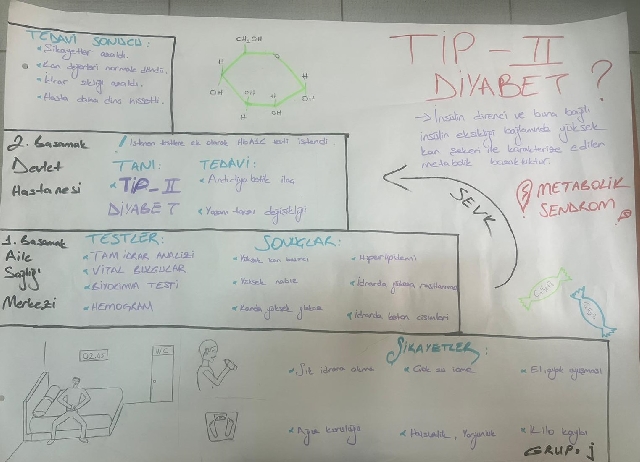 TEDAVİ SONUCU:
Şikayetler azaldı.
Kan değerleri normale döndü.
İdrar sıklığı azaldı.
Hasta daha dinç hissetti.
CH₂OH
O
H
H
OH
OH
H
OH
TİP - II
DİYABET ?
→ İnsülin direnci ve buna bağlı
insülin eksikliği bağlamında yüksek
kan şekeri ile karakterize edilen
metabolik bozukluktur.
METABOLİK
SENDROM
SEVK
2. Basamak
Devlet
Hastanesi
İstenen testlere ek olarak HbA1C testi istendi.
TANI:
TİP-II
DİYABET
TEDAVİ:
Antidiyabetik ilaç
Yaşam tarzı değişikliği
1. Basamak
Aile
Sağlığı
Merkezi
TESTLER:
TAM İDRAR ANALİZİ
VİTAL BULGULAR
BİYOKİMYA TESTİ
HEMOGRAM
SONUÇLAR:
Yüksek kan basıncı
Yüksek nabız
Kanda yüksek glukoz
Hiperlipidemi
İdrarda yüksek
İdrarda keton cisimleri
02.45
WC
ŞİKAYETLER:
Sık idrara çıkma
Çok su içme
El, ayak uyuşması
Ağız kuruluğu
Halsizlik, Yorgunluk
Kilo kaybı
GRUP: j